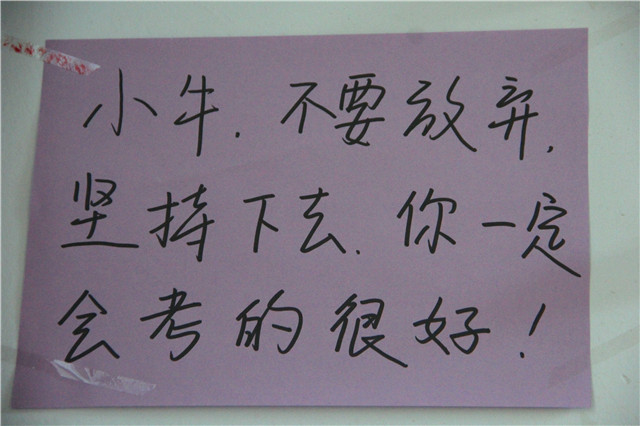 小牛.不要放弃,
坚持下去.你一定
会考的很好！